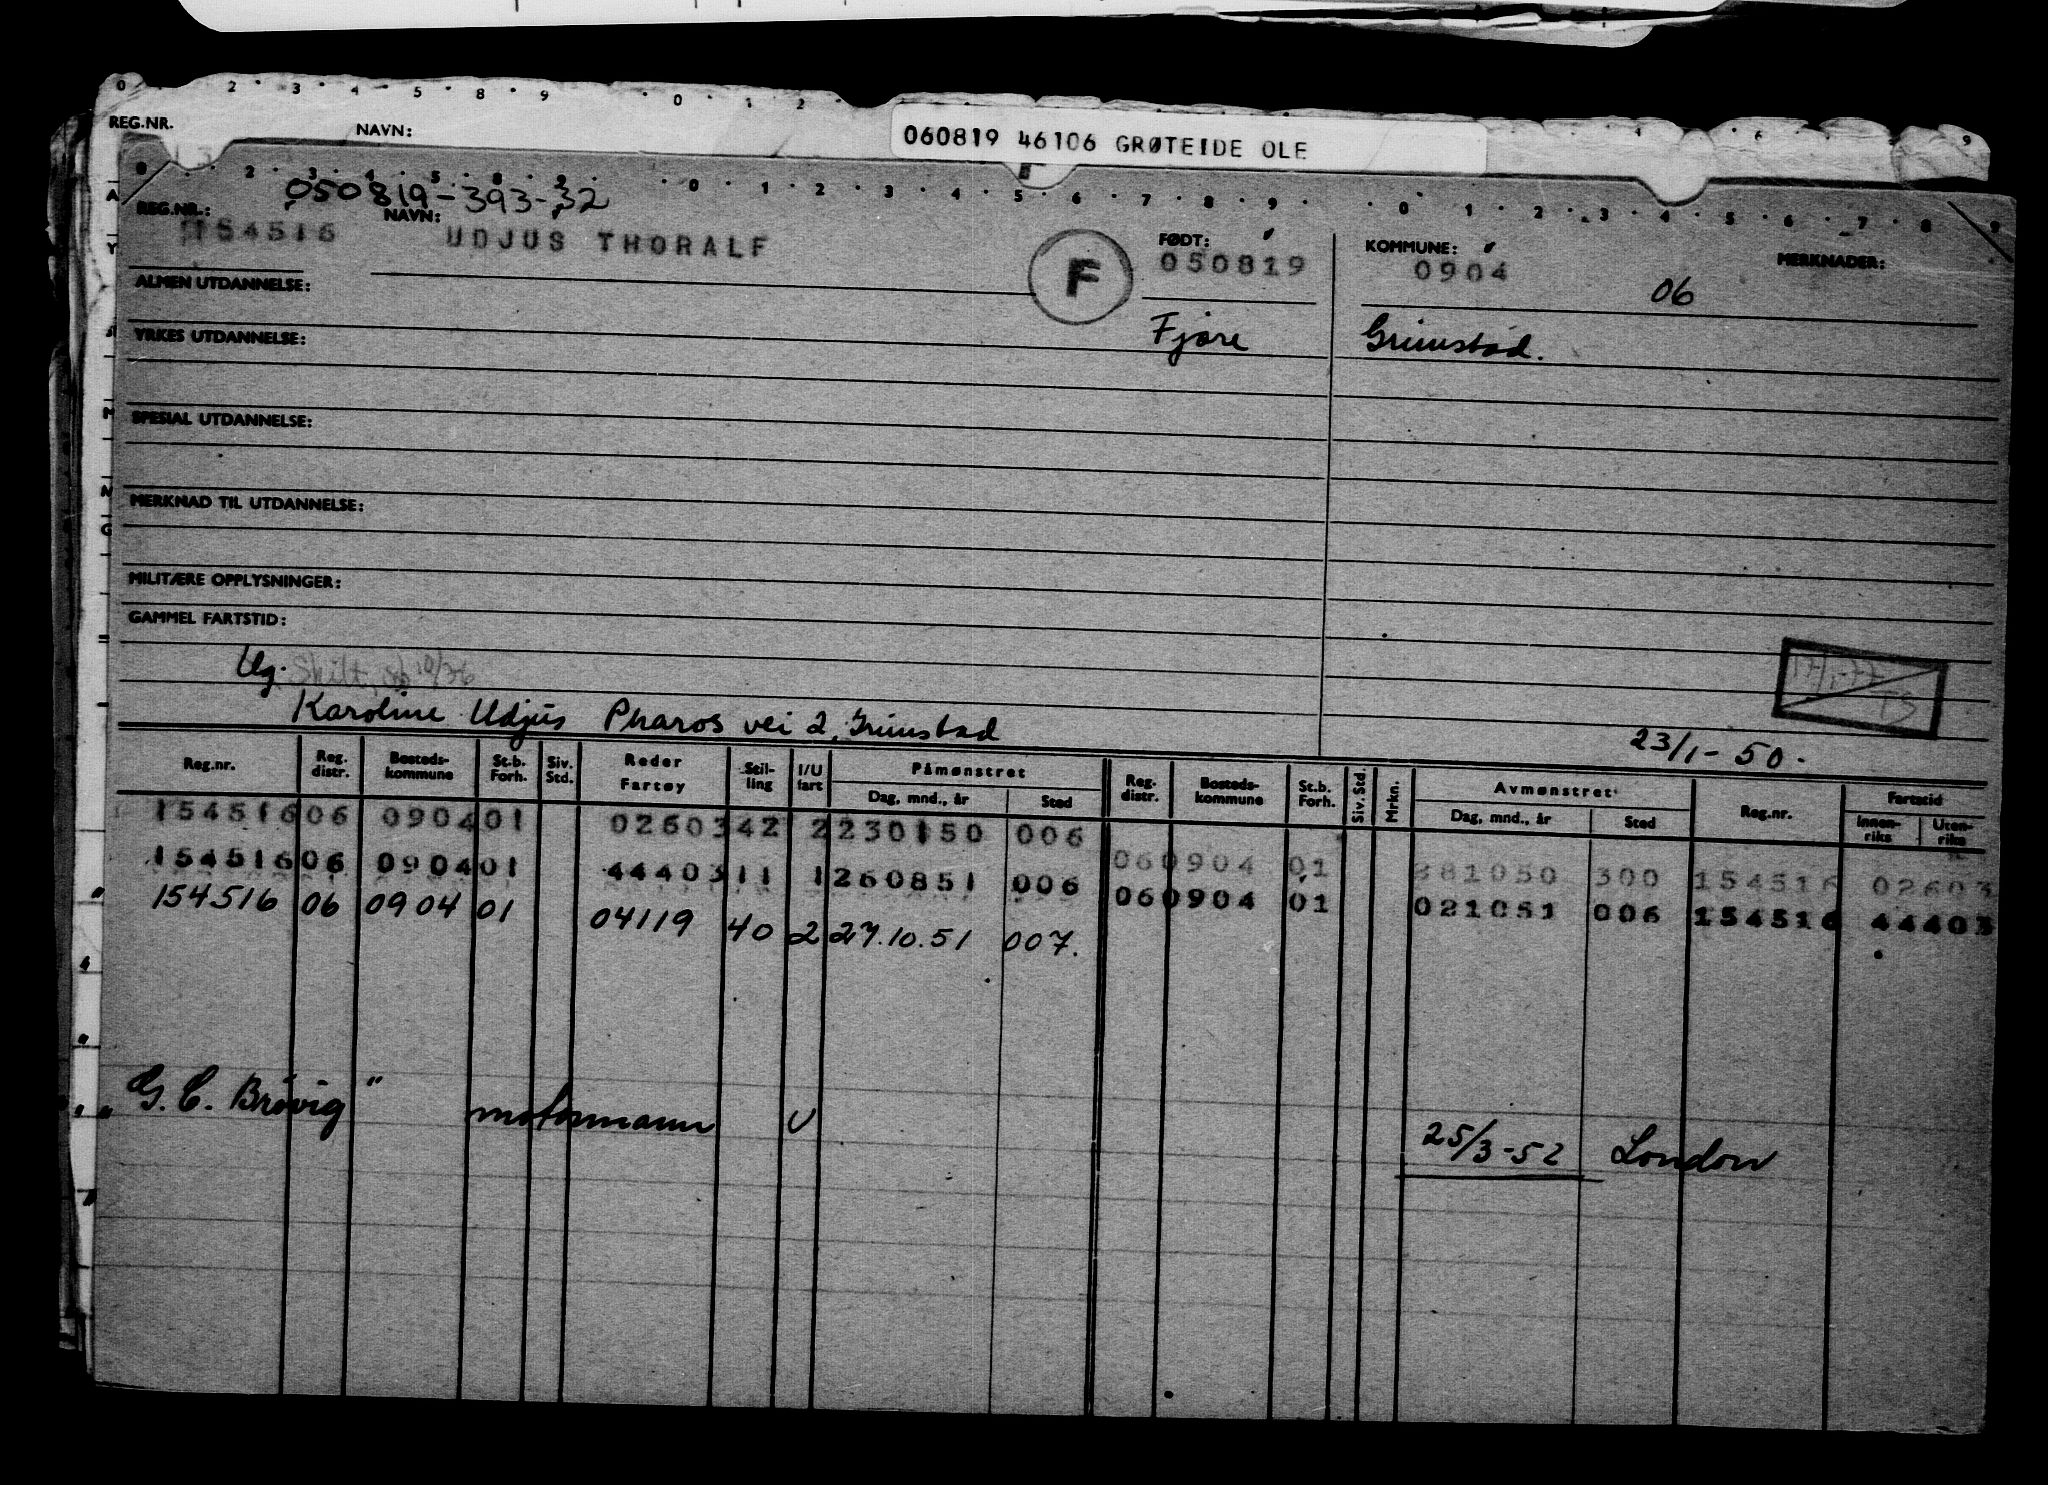 0 2 3 4 5 8 9 0 1 2
REG.NR. NAVN:
060819 46106 GRØTEIDE OLE
050819-393-32
REG.NR.: NAVN: FØDT: KOMMUNE: MERKNADER:
154516 UDJUS THORALF F 050819 0904
06
ALMEN UTDANNELSE:
YRKES UTDANNELSE: Fjære Grimstad.
SPESIAL UTDANNELSE:
MERKNAD TIL UTDANNELSE:
MILITÆRE OPPLYSNINGER:
GAMMEL FARTSTID:
Ug. Skilt, 10/36
Karoline Udjus Pharos vei 2, Grimstad
23/1-50.
Reg.nr. Reg. distr. Bosteds-kommune St.b. Forh. Siv. Std. Reder Fartøy Stil-ling I/U fart Påmønstret Dag, mnd., år Sted Reg. distr. Bosteds-kommune St.b. Forh. Siv. Std. Mrkn. Avmønstret Dag, mnd., år Sted Reg.nr. Fartstid Innen-riks Uten-riks
154516 06 0904 01 02603 42 2 230150 006 06 0904 01 381050 300 154516 02603
154516 06 0904 01 44403 11 1 260851 006 06 0904 01 021051 006 154516 44403
154516 06 0904 01 04119 40 2 27.10.51 007.
"G. C. Brövig" motormann U 25/3-52 London